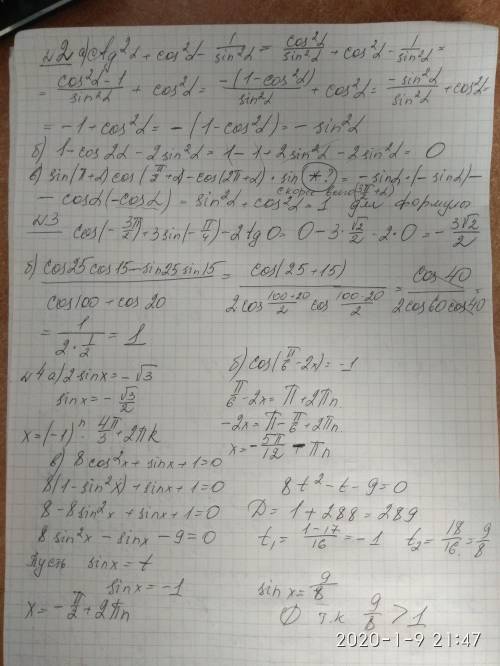 №2 а) ctg²α + cos²α - 1/sin²α = cos²α/sin²α + cos²α - 1/sin²α =
= (cos²α - 1)/sin²α + cos²α = -(1-cos²α)/sin²α + cos²α = -sin²α/sin²α + cos²α
= -1 + cos²α = -(1-cos²α) = - sin²α
б) 1 - cos 2α - 2 sin²α = 1 - 1 + 2 sin²α - 2 sin²α = 0
в) sin(π+α) cos(π/2+α) - cos(2π+α) · sin(*?) = - sinα · (- sinα) -
скорее всего (3π/2+α)
- cosα(-cosα) = sin²α + cos²α = 1 для формулы
№3 cos(-3π/2) + 3 sin(-π/4) - 2 tg 0 = 0 - 3 · √2/2 - 2·0 = - 3√2/2
б) (cos25 cos15 - sin25 sin15)/(cos100 + cos 20) = cos(25+15)/(2cos (100+20)/2 cos (100-20)/2) = cos 40/(2cos60 cos40) =
= 1/(2 · 1/2) = 1
№4 а) 2 sinx = -√3
sinx = - √3/2
x = (-1)ⁿ · 4π/3 + 2πk
б) cos(π/6 - 2x) = -1
π/6 - 2x = π + 2πn
-2x = π - π/6 + 2πn
x = - 5π/12 - πn
в) 8 cos²x + sinx + 1 = 0
8(1 - sin²x) + sinx + 1 = 0
8 - 8sin²x + sinx + 1 = 0
8 sin²x - sinx - 9 = 0
Пусть sinx = t
8t² - t - 9 = 0
D = 1 + 288 = 289
t₁ = (1-17)/16 = -1 t₂ = 18/16 = 9/8
sinx = -1
x = - π/2 + 2πn
sinx = 9/8
∅ т.к 9/8 > 1
2020-1-9 21:47